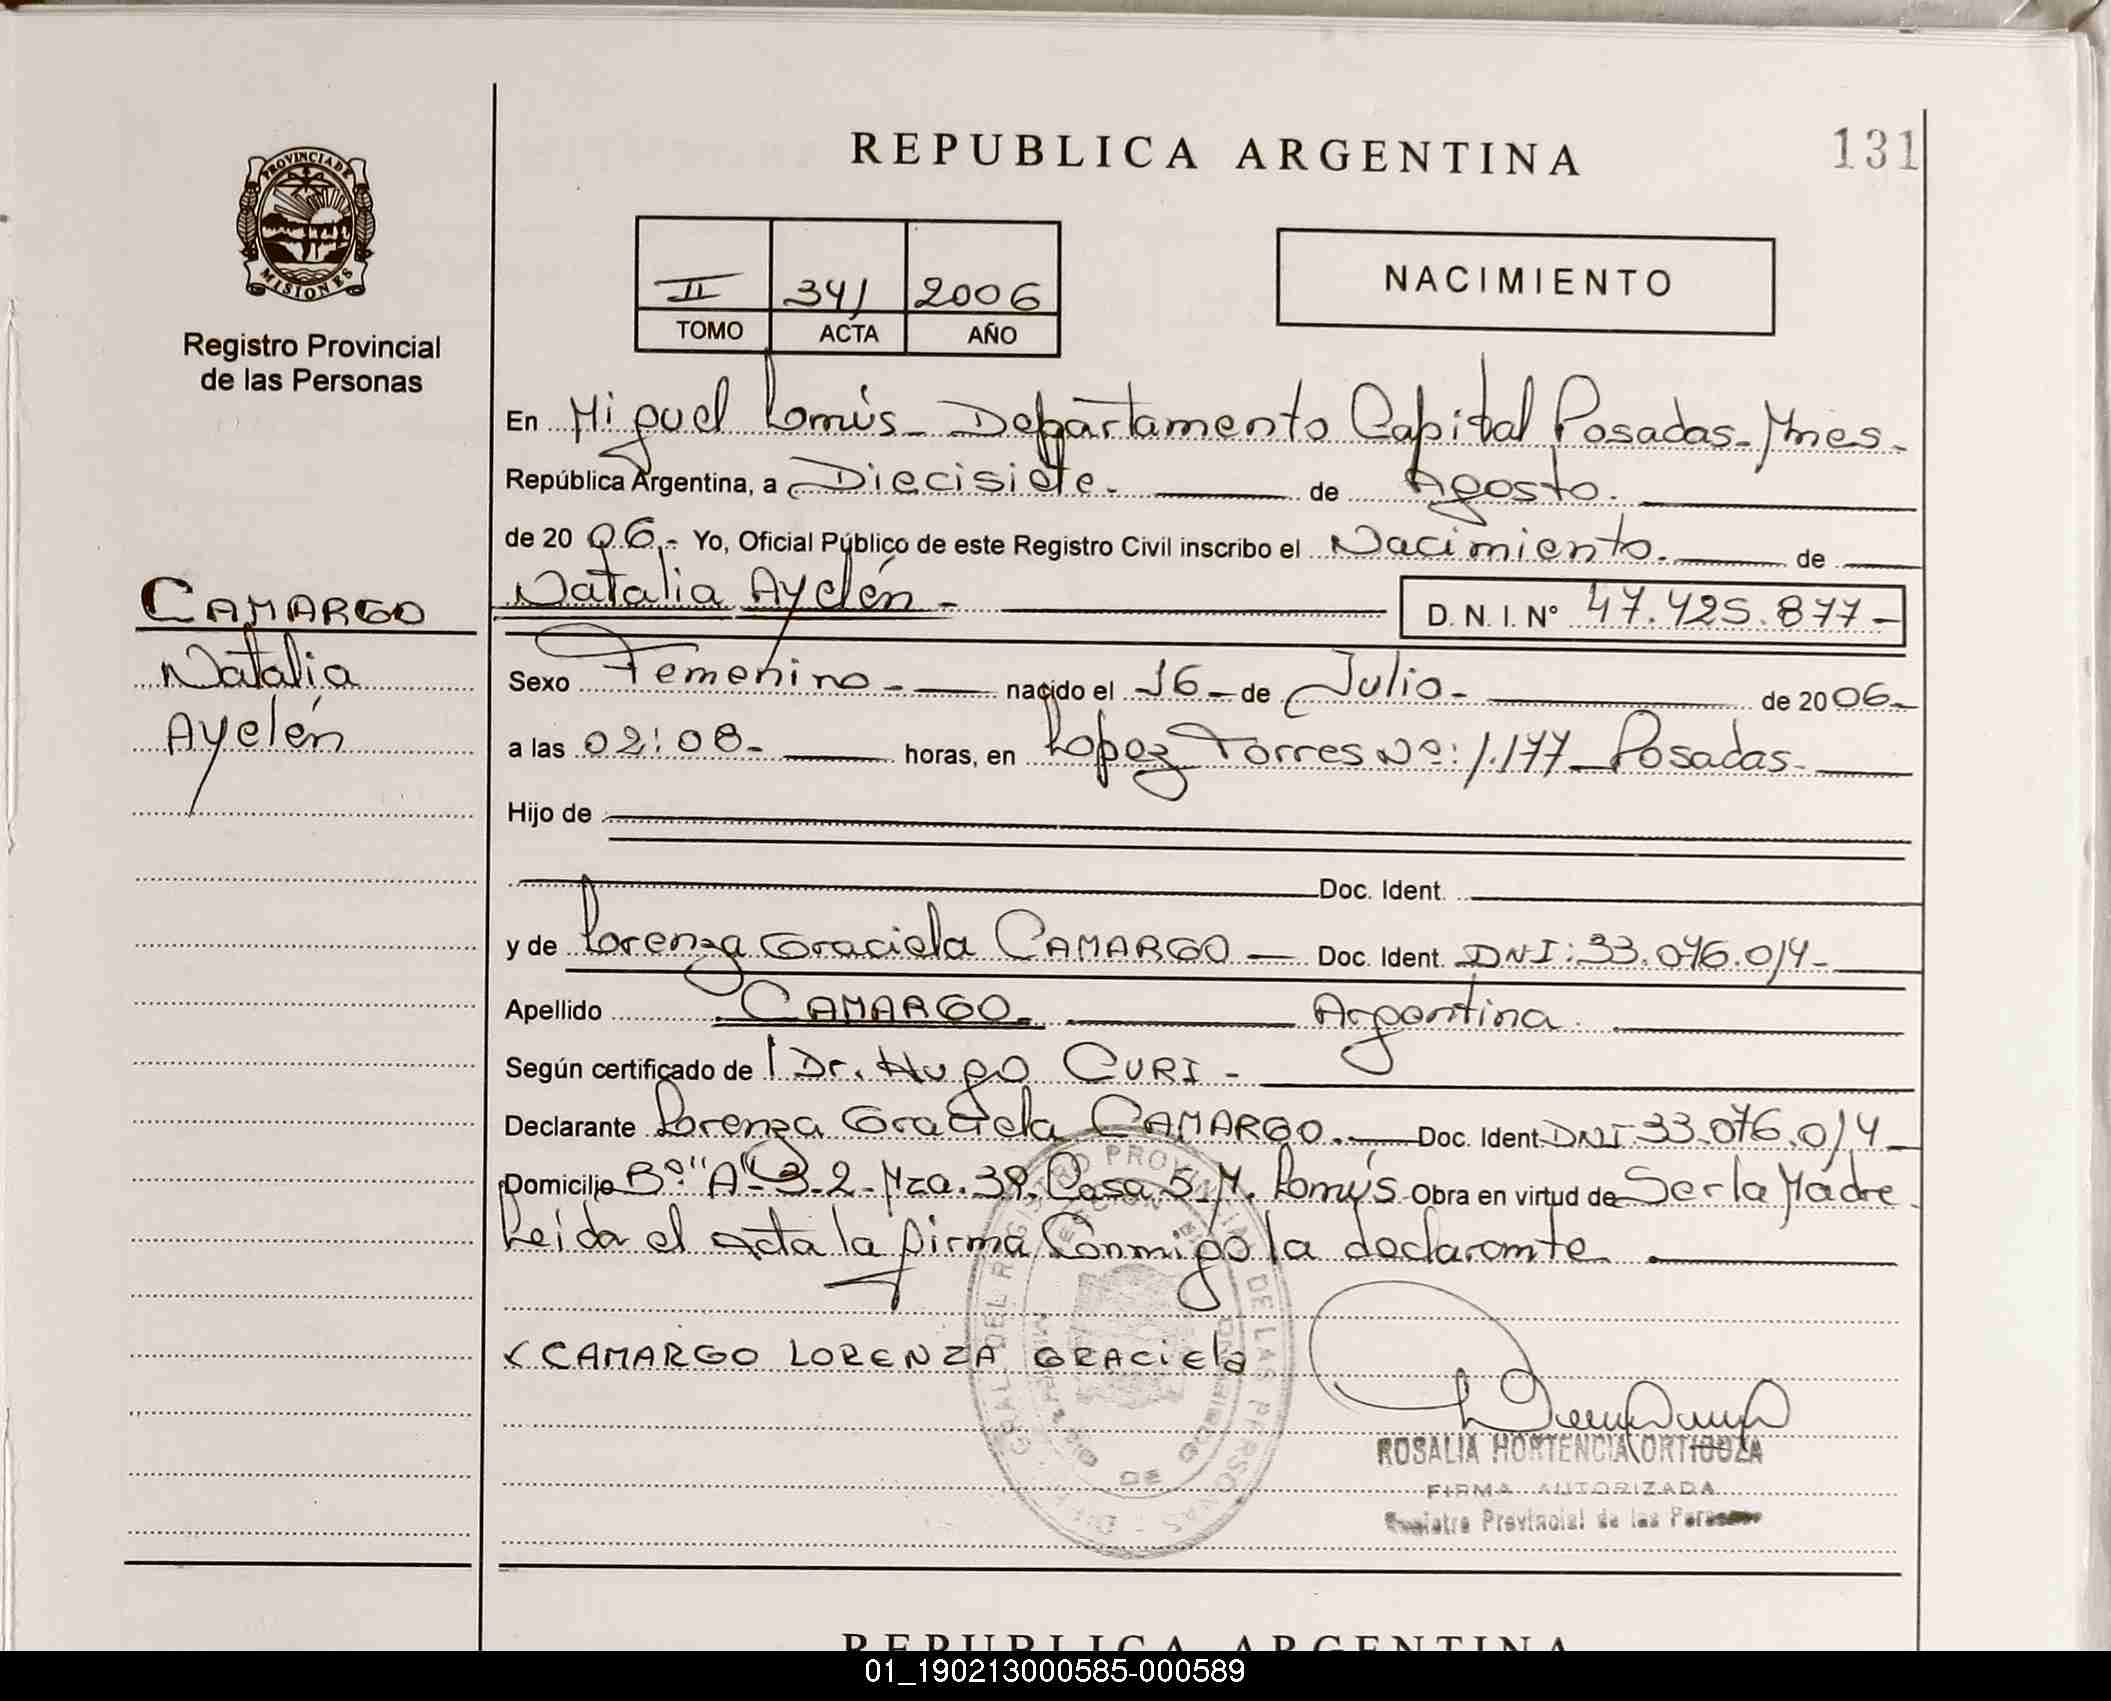 REPUBLICA ARGENTINA
131
PROVINCIA DE
MISIONES
Registro Provincial
de las Personas
II 341 2006
TOMO ACTA AÑO
NACIMIENTO
En Miguel Lanús - Departamento Capital Posadas - Mnes -
República Argentina, a Diecisiete. de Agosto.
de 2006.- Yo, Oficial Público de este Registro Civil inscribo el Nacimiento. de
Natalia Ayelén - D. N. I. N° 47.425.877 -
CAMARGO
Natalia
Ayelén
Sexo Femenino - nacido el 16 - de Julio - de 2006 -
a las 02:08 - horas, en Lopez Torres Nº: 1.177 - Posadas -
Hijo de
Doc. Ident.
y de Lorenza Graciela CAMARGO - Doc. Ident. DNI: 33.076.014 -
Apellido CAMARGO - Argentina.
Según certificado de Dr. Hugo CURI -
Declarante Lorenza Graciela CAMARGO. - Doc. Ident. DNI 33.076.014 -
Domicilio Bº "A" 3-2- Mza. 39. Casa 5 M. Lanús Obra en virtud de Ser la Madre -
Leída el acta la firma conmigo la declarante
x CAMARGO LORENZA GRACIEla
REGISTRO PROVINCIAL DE LAS PERSONAS
ROSALIA HORTENCIA ORTIGOZA
FIRMA AUTORIZADA
Registro Provincial de las Personas
REPUBLICA ARGENTINA
01_190213000585-000589